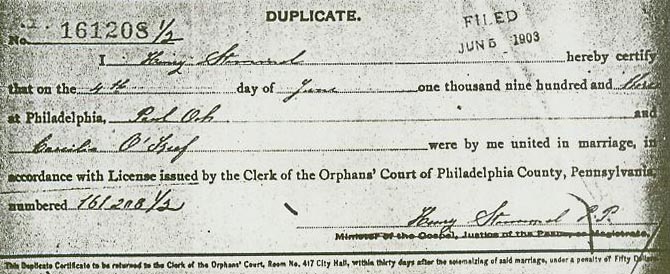 DUPLICATE.
No. 161208 1/2
FILED
JUN 5 1903
I Henry Stommel hereby certify
that on the 4th day of June one thousand nine hundred and three
at Philadelphia, Paul and
Cecilia were by me united in marriage, in
accordance with License issued by the Clerk of the Orphans' Court of Philadelphia County, Pennsylvania
numbered 161208 1/2
Henry Stommel
Minister of the Gospel, Justice of the Peace or Magistrate.
This Duplicate Certificate to be returned to the Clerk of the Orphans' Court, Room No. 417 City Hall, within thirty days after the solemnizing of said marriage, under a penalty of Fifty Dollars